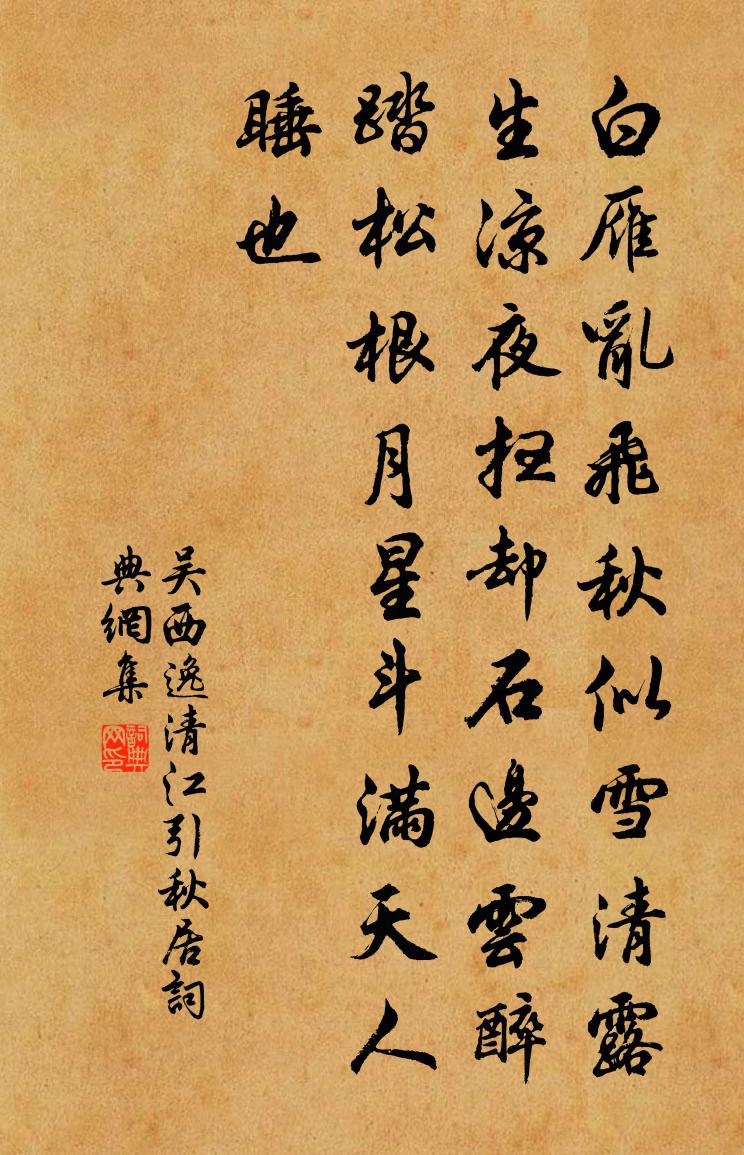 白雁亂飛秋似雪清露
生涼夜扫却石邊雲醉
踏松根月星斗满天人
睡也
吴西逸清江引秋居詞
典網集
詞典网印